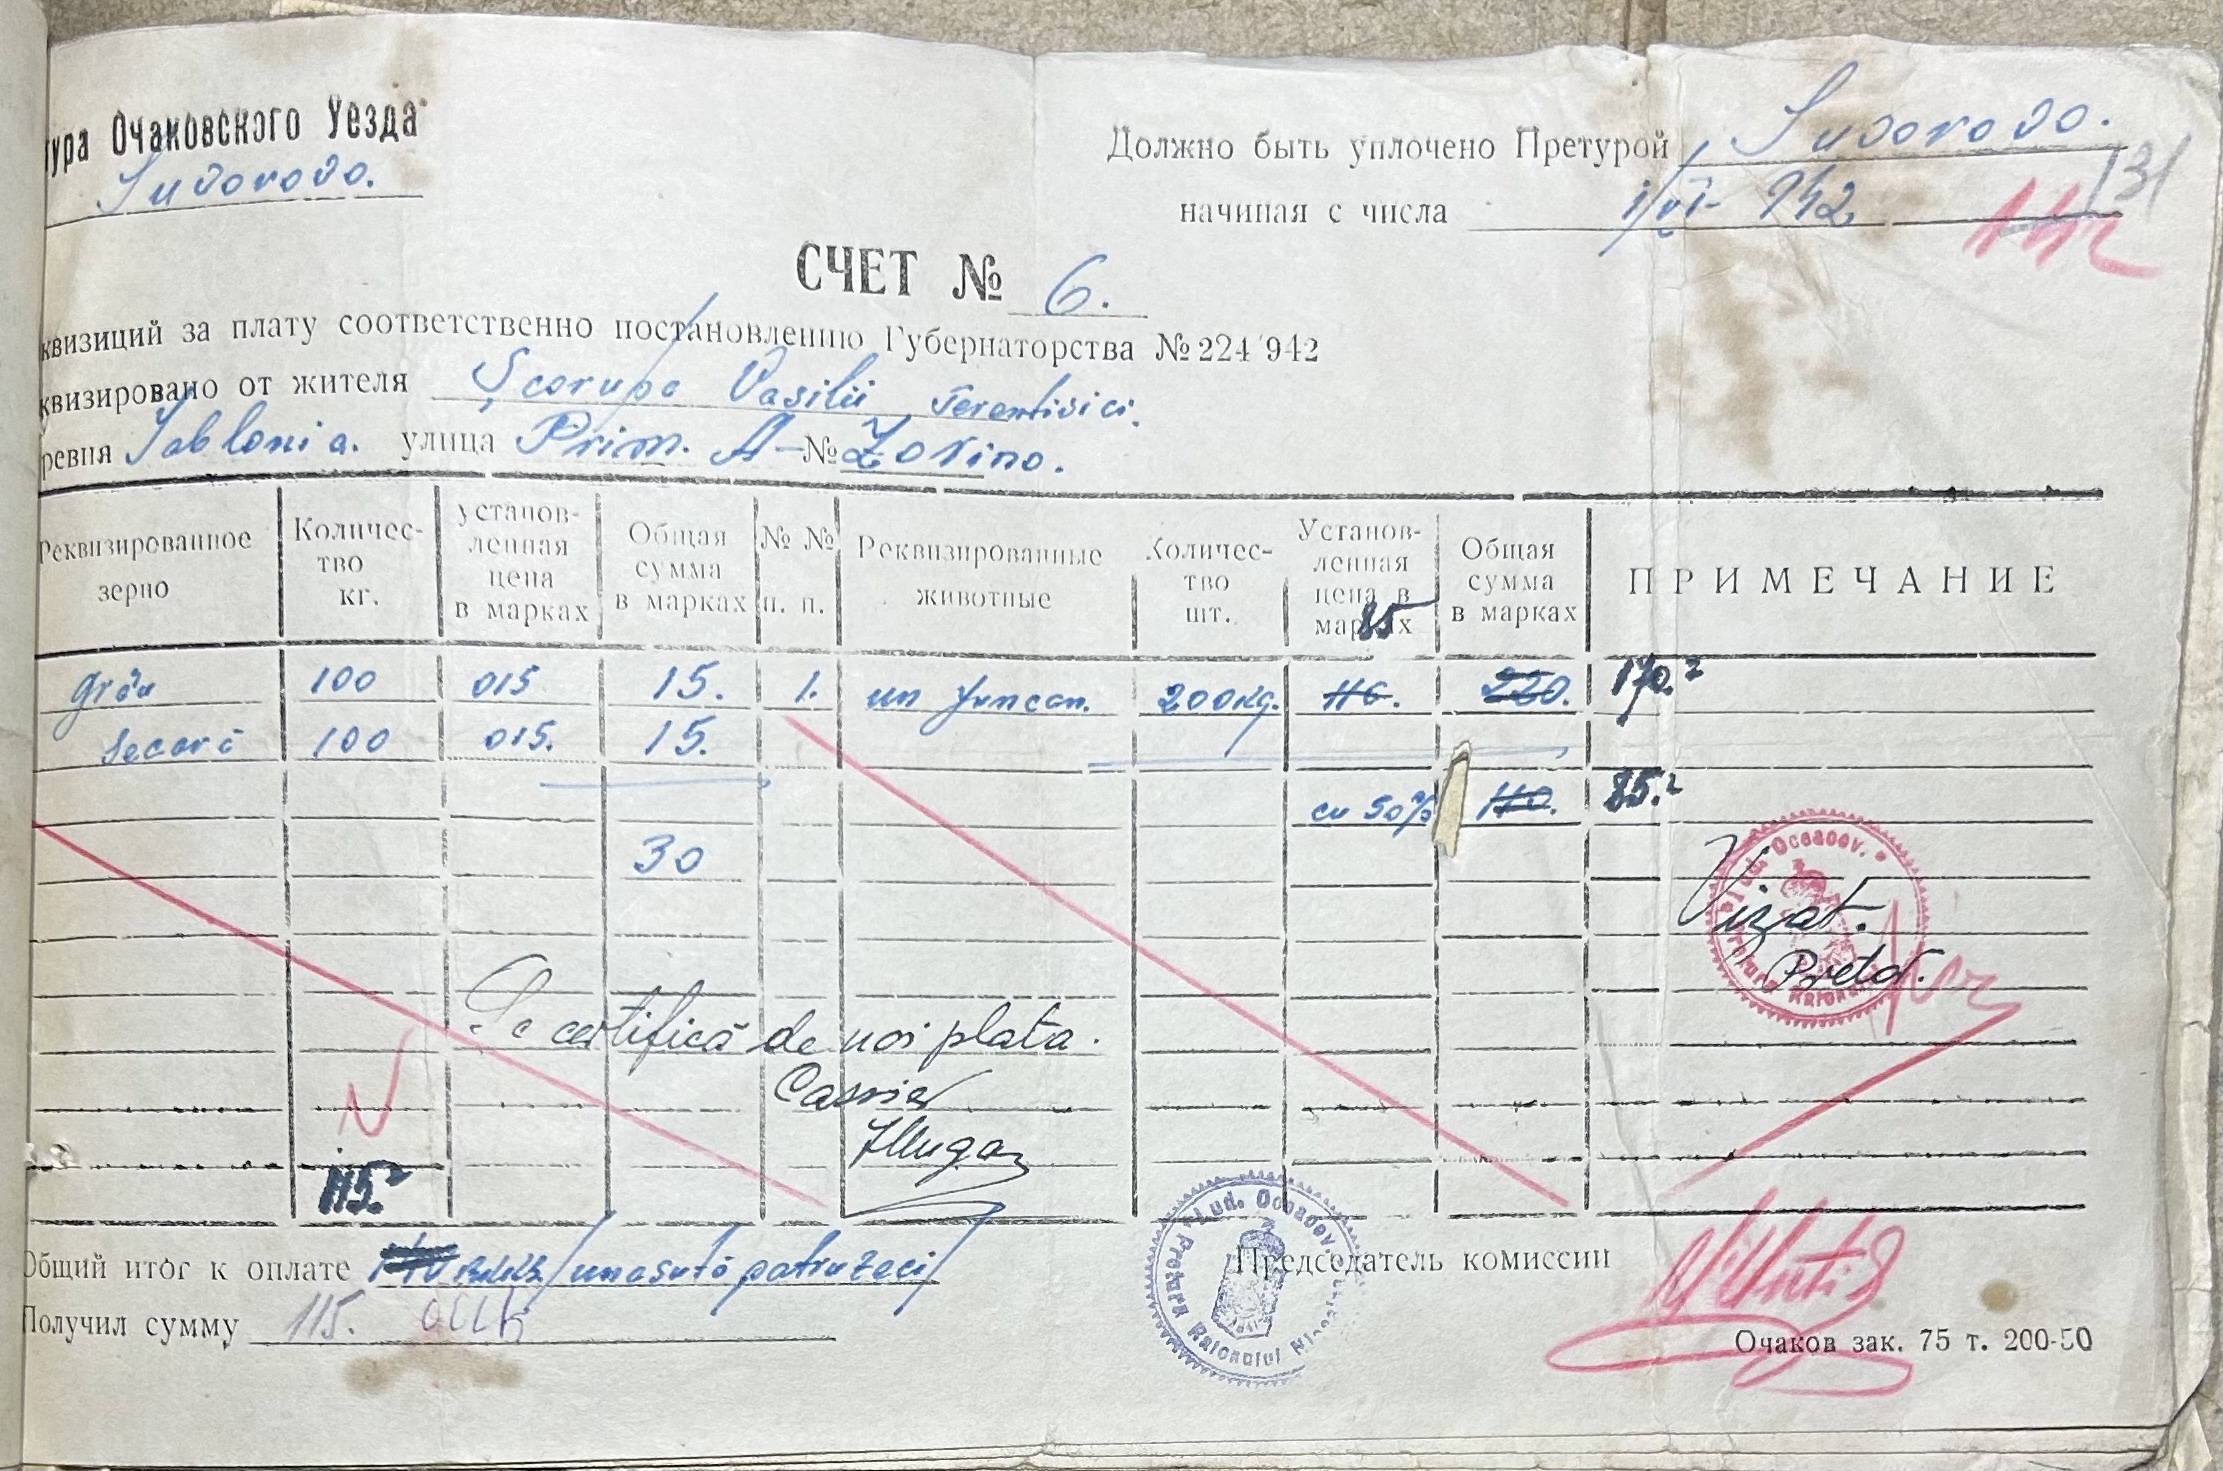 тура Очаковского Уезда
Suvorovo.
Должно быть уплочено Претурой Suvorovo.
131
начиная с числа 1/VI- 942
142
СЧЕТ № 6.
квизиций за плату соответственно постановлению Губернаторства № 224/942
квизировано от жителя Școrupa Vasilii Terentivici.
ревня Iablonia. улица Prim. A-№ Zorino.
Реквизированное зерно
Количес-тво кг.
установ-ленная цена в марках
Общая сумма в марках
№ № п. п.
Реквизированные животные
Количес-тво шт.
Установ-ленная цена в марках
85
Общая сумма в марках
ПРИМЕЧАНИЕ
grâu 100 015 15. 1. un juncan. 200 kg. 110. 220. 170.
secară 100 015. 15.
cu 50% 110. 85.
30
Vizat.
Pretor.
Se certifică de noi plata.
Cassier
115.
Общий итог к оплате 140 RKKS /unasută patruzeci/
Председатель комиссии
Получил сумму 115.
Очаков зак. 75 т. 200-50
Jud. Oceacov. Pretura Raionului
Jud. Oceacov. Pretura Raionului